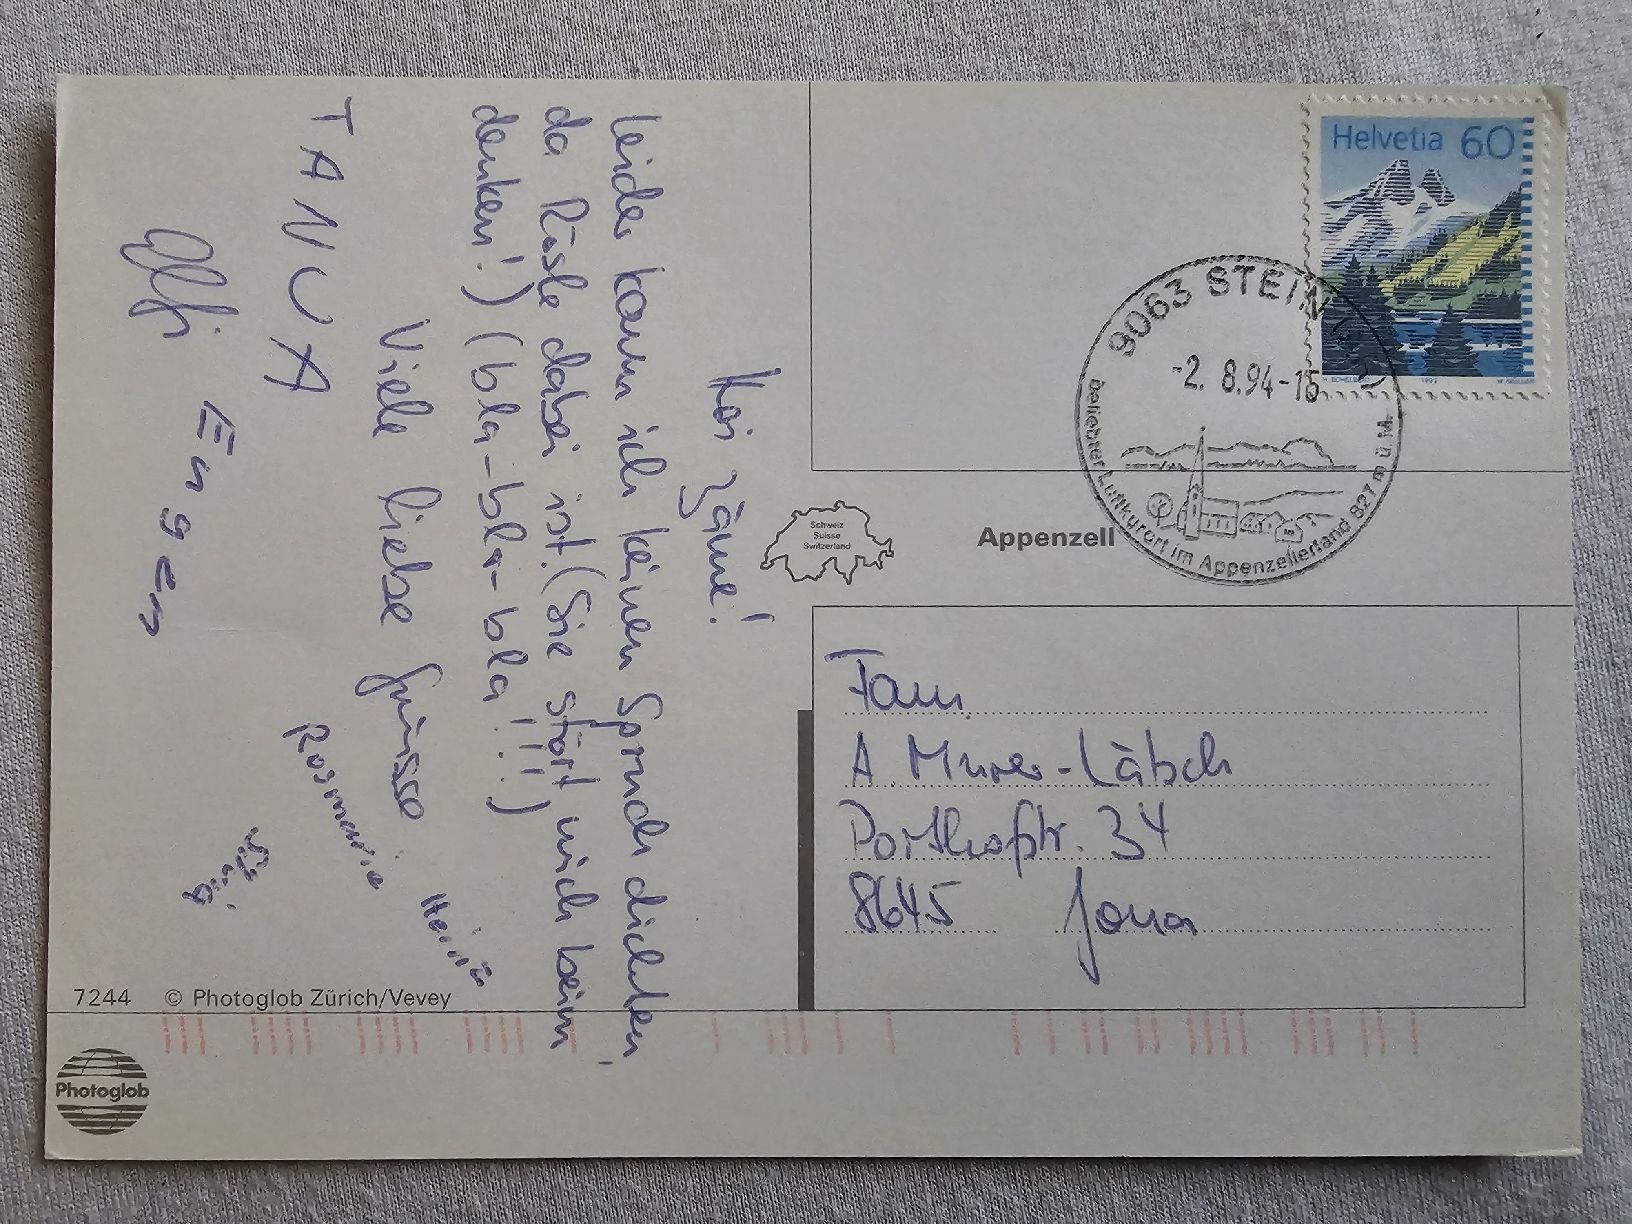 Hoi zäme!
leider kann ich keinen Spruch dichten,
da Rösle dabei ist. (Sie stört mich beim
denken!) (bla-bla-bla-bla!!!)
Viele liebe Grüsse
TANJA
Rosmarie
Heini
Eugen
Helvetia 60
1991
9063 STEIN
-2. 8.94-16
beliebter Luftkurort im Appenzellerland 827 m ü.M.
Schweiz
Suisse
Switzerland
Appenzell
Fam.
A. Murer-Lätsch
Porthofstr. 34
8645 Jona
7244 © Photoglob Zürich/Vevey
Photoglob